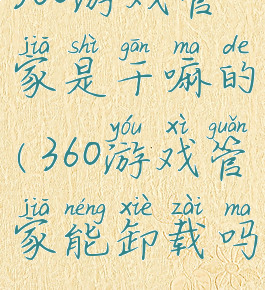 360游戏管
jiā shì gān ma de
家是干嘛的
yóu xì guǎn
(360游戏管
jiā néng xiè zài ma
家能卸载吗